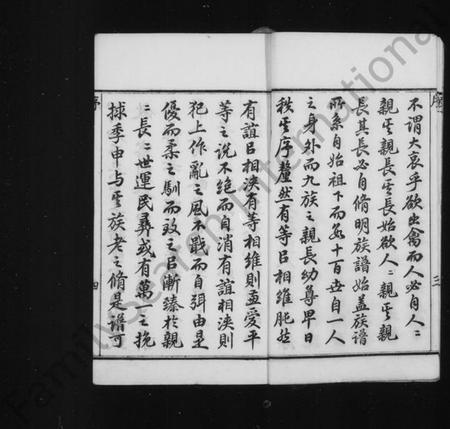 序
三
不謂大哀乎欲出禽而人必自人〻
親其親長其長始欲人〻親其親
長其長必自脩明族譜始蓋族譜
所系自始祖下而爲十百世自一人
之身外而九族之親長幼尊卑日
秩其序釐然有等㠯相維肫然
有誼㠯相浹有等相維則孟愛平
等之說不絕而自消有誼相浹則
犯上作亂之風不戢而自弭由是
優而柔之馴而致之㠯漸臻於親
〻長〻世運民彝或有萬一之挽
捄季申與其族老之脩是譜可
序
四
FamilySearch International